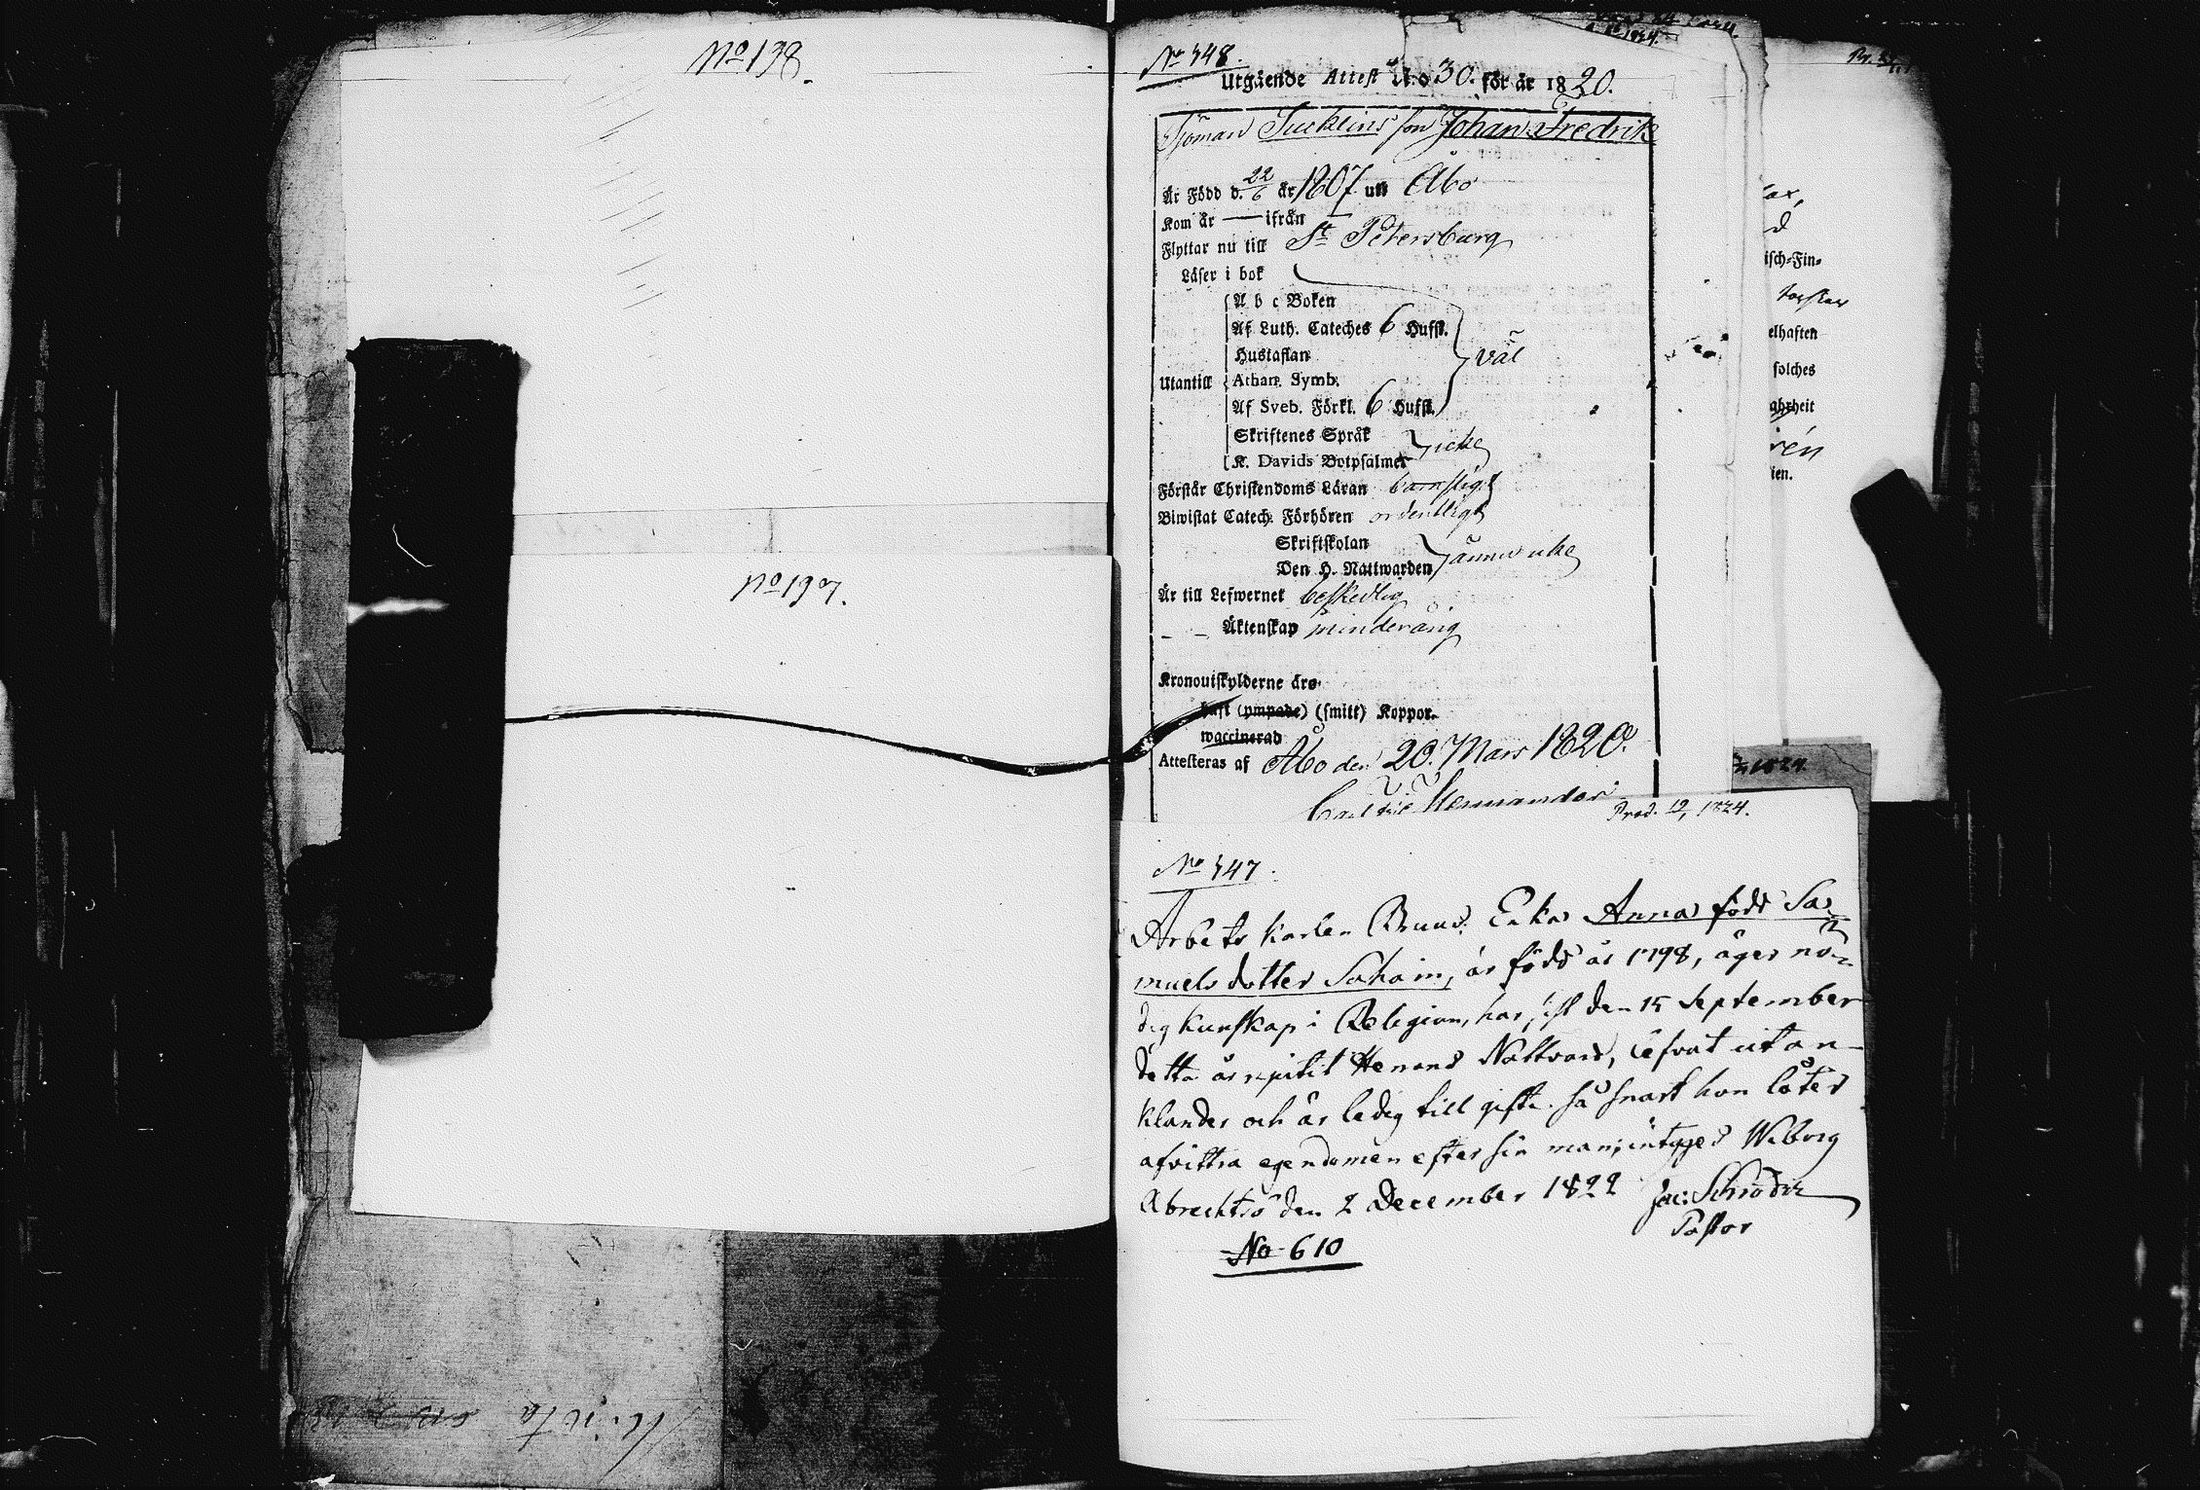 No 198.
No 197.
No 348.
Utgående Attest No 30. för år 1820.
Sjöman son Johan Fredrik
Är Född d. 22/6 år 1807 uti Åbo
Kom år — ifrån —
Flyttar nu till St Petersburg
Läser i bok
A b c Boken
Af Luth. Cateches 6 Hufst.
Hustaflan
väl
Utantill Athan. Symb.
Af Sveb. Förkl. 6 Hufst.
Skriftenes Språk
icke
K. Davids Botpsalmer
Förstår Christendoms Läran barnsligt
Biwistat Catech. Förhören ordentligt
Skriftskolan
ännu icke
Den H. Nattwarden
Är till Lefwernet beskedlig
— — Äktenskap minderårig
Kronoutskylderne äro
haft (ympade) (smitt) Koppor.
waccinerad
Attesteras af Åbo den 20. Mars 1820.
Carl
Prod. 12, 1824.
No 347.
Arbets Karlen Enka Anna född Sa-
muels dotter Sahoin, är född år 1798, äger nö-
dig kunskap i Religion, har sist den 15 September
detta år Herrans Nattvard, utan
klander och är ledig till gifte så snart hon låter
afvittra egendomen efter sin man; intygas Wiborg
den 2 December 1822 Jac: Schröder
Pastor
No 610
isch-Fin-
elhaften
solches
ahrheit
rén
ien.